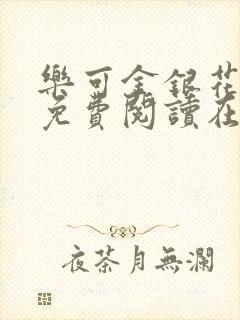 樂可金銀花
免費閱讀在
夜茶月無瀾